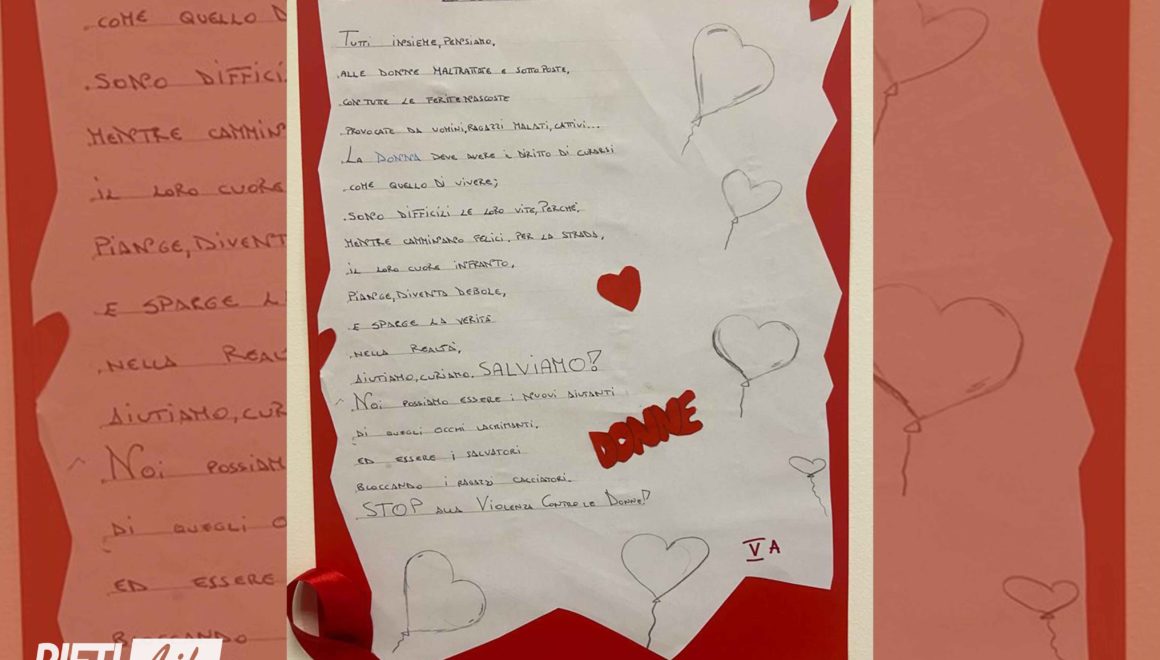 Tutti insieme, pensiamo,
alle donne maltrattate e sottoposte,
con tutte le ferite nascoste
provocate da uomini, ragazzi malati, cattivi...
La Donna deve avere i diritto di curarsi
come quello di vivere;
sono difficili le loro vite, perché,
mentre camminano felici, per la strada,
il loro cuore infranto,
piange, diventa debole,
e sparge la verità
nella realtà,
aiutiamo, curiamo, SALVIAMO!
Noi possiamo essere i nuovi aiutanti
di quegli occhi lacrimanti,
ed essere i salvatori
bloccando i ragazzi cacciatori.
STOP alla Violenza Contro le Donne!
DONNE
V A
RIETI Life